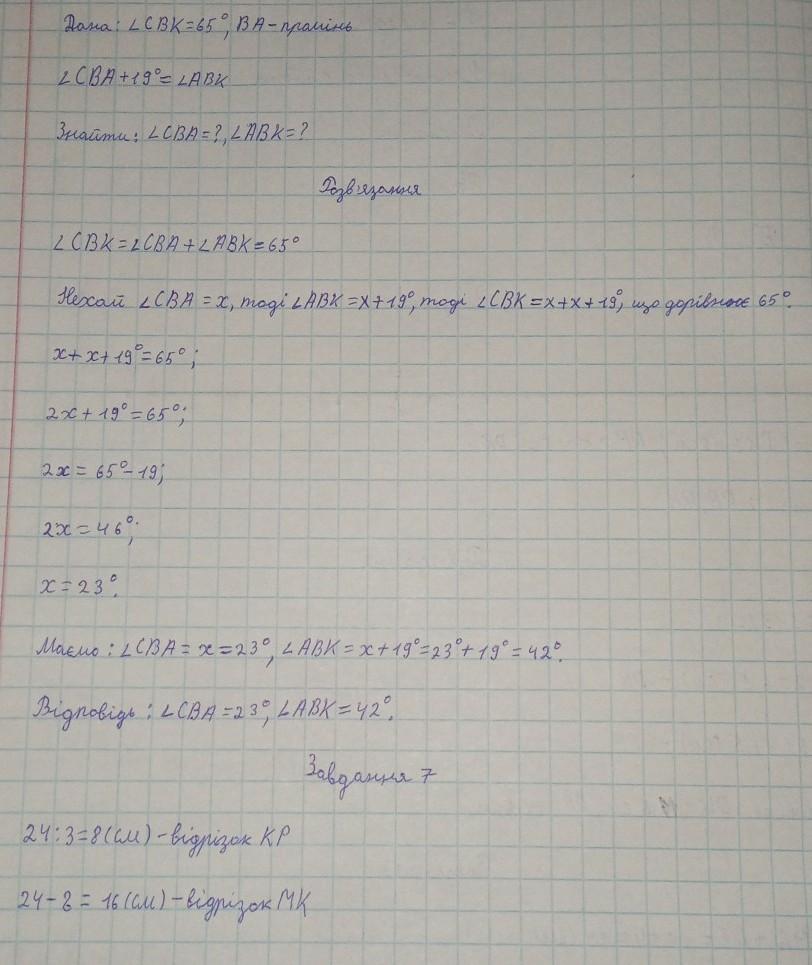 Дана: ∠CBK=65°, BA-промінь
∠CBA+19°=∠ABK
Знайти: ∠CBA=?, ∠ABK=?
Розв'язання
∠CBK=∠CBA+∠ABK=65°
Нехай ∠CBA=x, тоді ∠ABK=x+19°, тоді ∠CBK=x+x+19°, що дорівнює 65°.
x+x+19°=65°;
2x+19°=65°;
2x=65°-19;
2x=46°;
x=23°.
Маємо: ∠CBA=x=23°, ∠ABK=x+19°=23°+19°=42°.
Відповідь: ∠CBA=23°, ∠ABK=42°.
Завдання 7
24:3=8(см)-відрізок KP
24-8=16(см)-відрізок MK